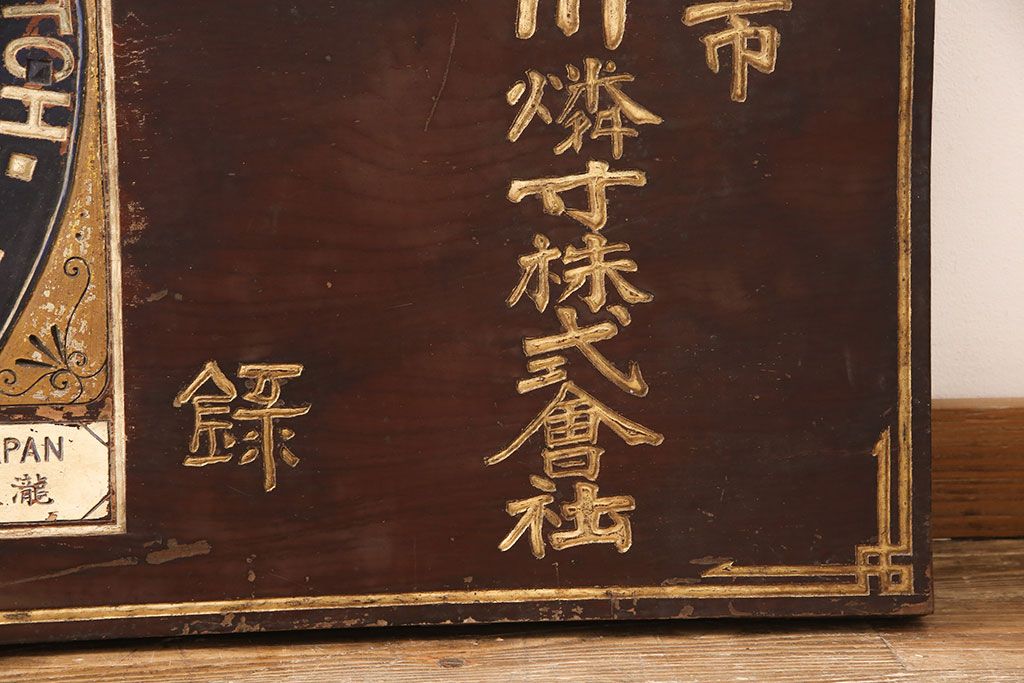 市
川燐寸株式會社
錄
TCH
PAN
瀧